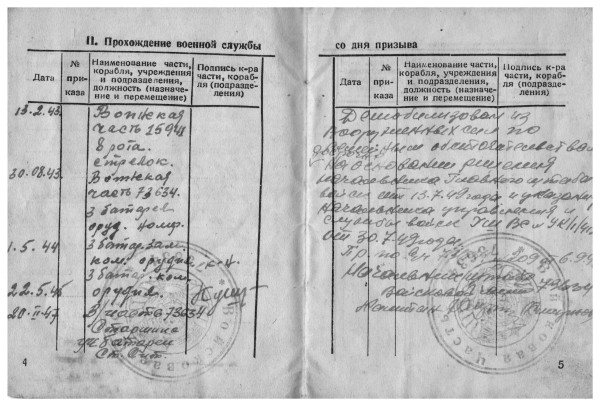 II. Прохождение военной службы
Дата
№ приказа
Наименование части, корабля, учреждения и подразделения, должность (назначение и перемещение)
Подпись к-ра части, корабля (подразделения)
13.2.43.
Воинская
часть 1594
8 рота.
стрелок.
30.08.43.
Воинская
часть 73634.
3 батарея
оруд. номер.
1.5.44
3 батар. зам.
ком. орудия
3 батар. ком.
22.5.46
орудия.
20.II.47
В часть 73634
Старшина
батареи
Войсковая
4
со дня призыва
Дата
№ приказа
Наименование части, корабля, учреждения и подразделения, должность (назначение и перемещение)
Подпись к-ра части, корабля (подразделения)
Демобилизован из
Вооруженных сил по
обстоятельствам
На основании решения
начальника Главного штаба
войск от 13.7.49 года и указания
начальника управления
службы войск
от 30.7.49 года.
Начальник штаба
Войсковой части 73634
Капитан
Войсковая часть
5